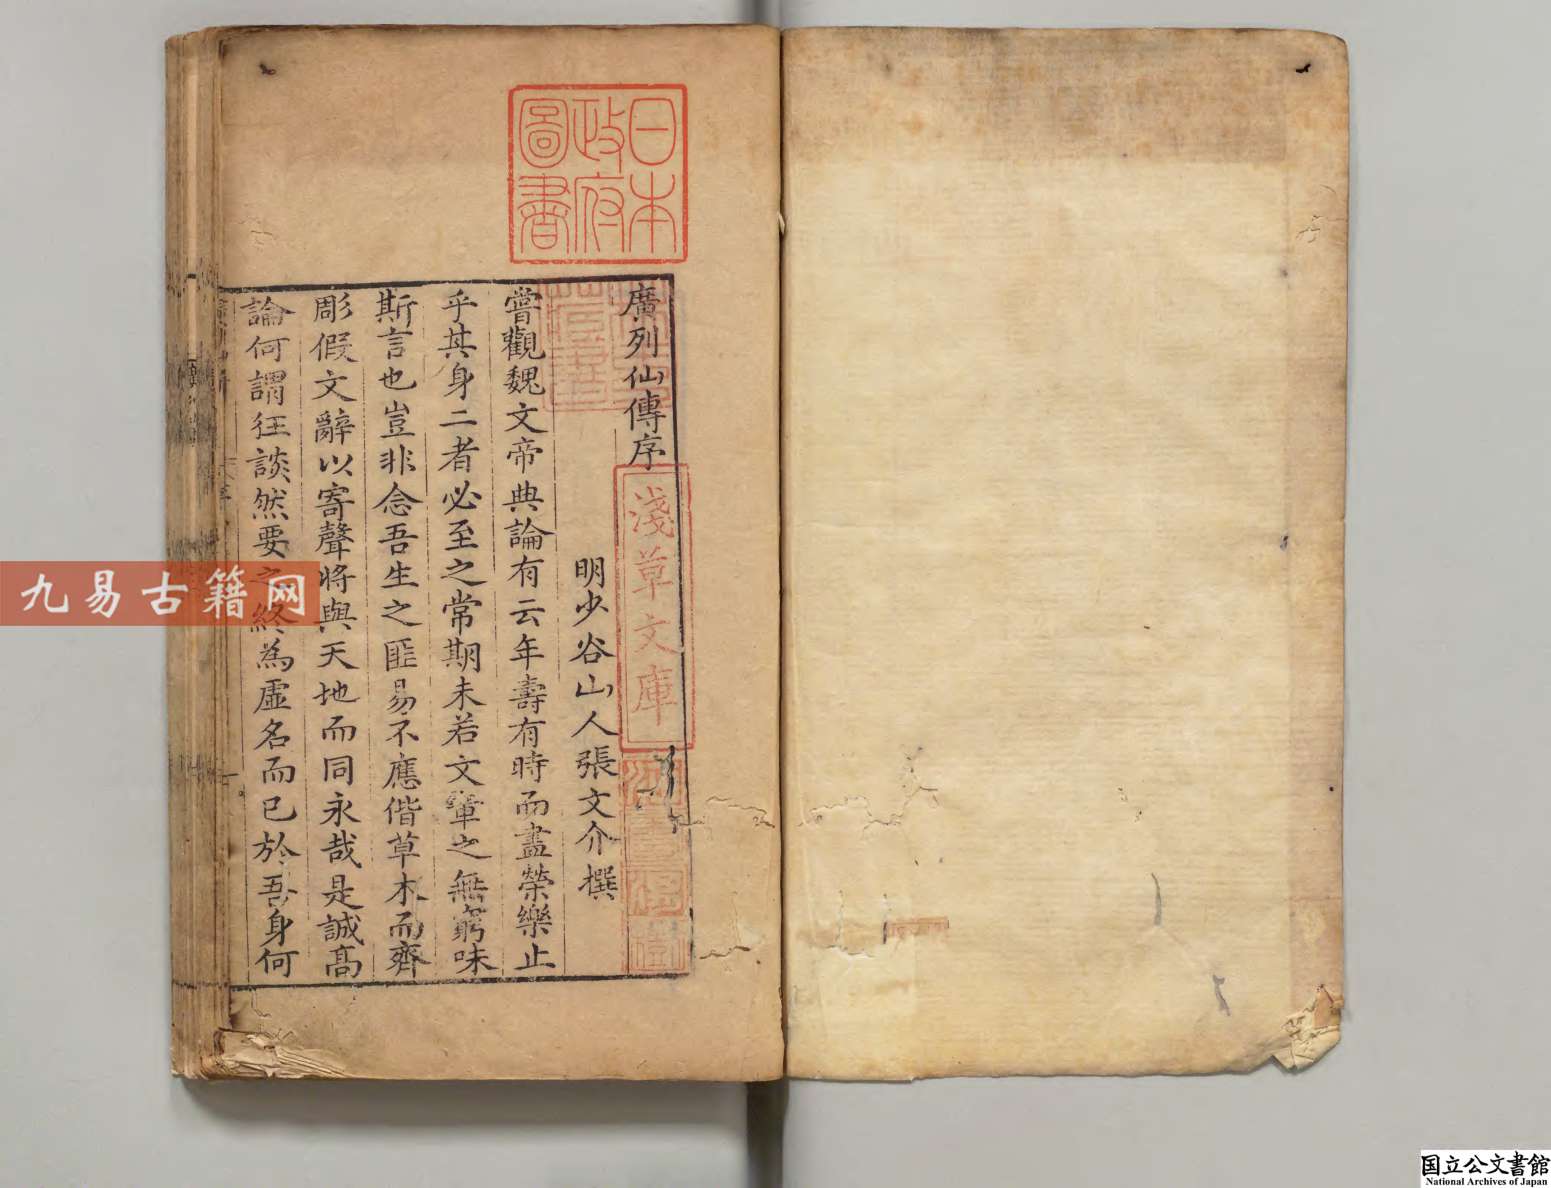 日本
政府
圖書
廣列仙傳序
淺草文庫
明少谷山人張文介撰
嘗觀魏文帝典論有云年壽有時而盡榮樂止
乎其身二者必至之常期未若文章之無窮味
斯言也豈非念吾生之匪易不應偕草木而齊
彫假文辭以寄聲將與天地而同永哉是誠高
論何謂狂談然要之終為虛名而已於吾身何
九易古籍网
国立公文書館
National Archives of Japan